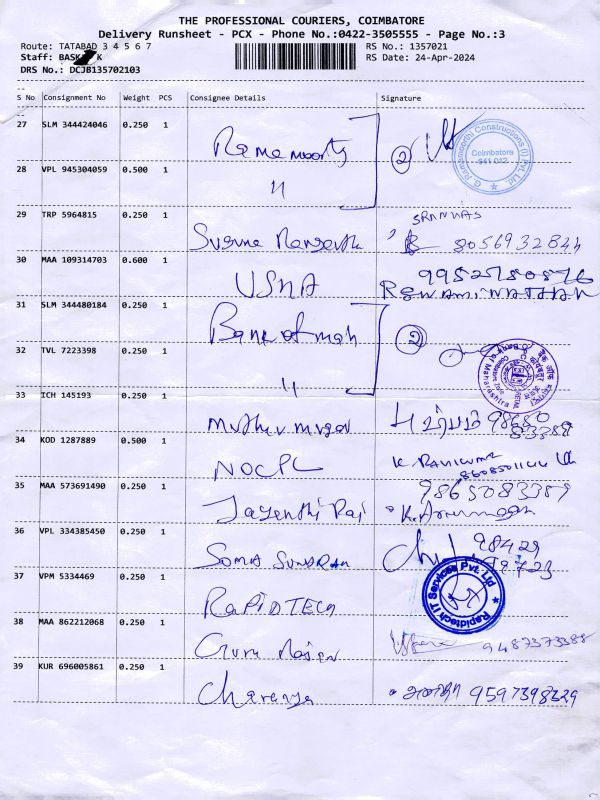 THE PROFESSIONAL COURIERS, COIMBATORE
Delivery Runsheet - PCX - Phone No.:0422-3505555 - Page No.:3
Route: TATABAD 3 4 5 6 7
RS No.: 1357021
Staff: BAS K
RS Date: 24-Apr-2024
DRS No.: DCJB135702103
S No Consignment No Weight PCS Consignee Details Signature
27 SLM 344424046 0.250 1 Ramamoorty 2
G Ramamoorthi Constructions (I) Pvt. Ltd
Coimbatore
641 012
28 VPL 945304059 0.500 1 "
29 TRP 5964815 0.250 1
SRINIVAS
8056932844
30 MAA 109314703 0.600 1 USNA
R SWAMINATHAN
31 SLM 344480184 0.250 1 Bank of mah 2
Bank of Maharashtra
32 TVL 7223398 0.250 1 "
33 ICH 145193 0.250 1 Muthu murgan
34 KOD 1287889 0.500 1 NOCPL
K RAVIKUMAR
35 MAA 573691490 0.250 1 Jayenthi Raj
9865083389
K. Arumugam
36 VPL 334385450 0.250 1 Soma Sundram
98429
19723
37 VPM 5334469 0.250 1 RAPIDTECH
Rapidtech IT Services Pvt. Ltd
38 MAA 862212068 0.250 1 Guru Rajan
9487373388
39 KUR 696005861 0.250 1 Charanya
9597398329